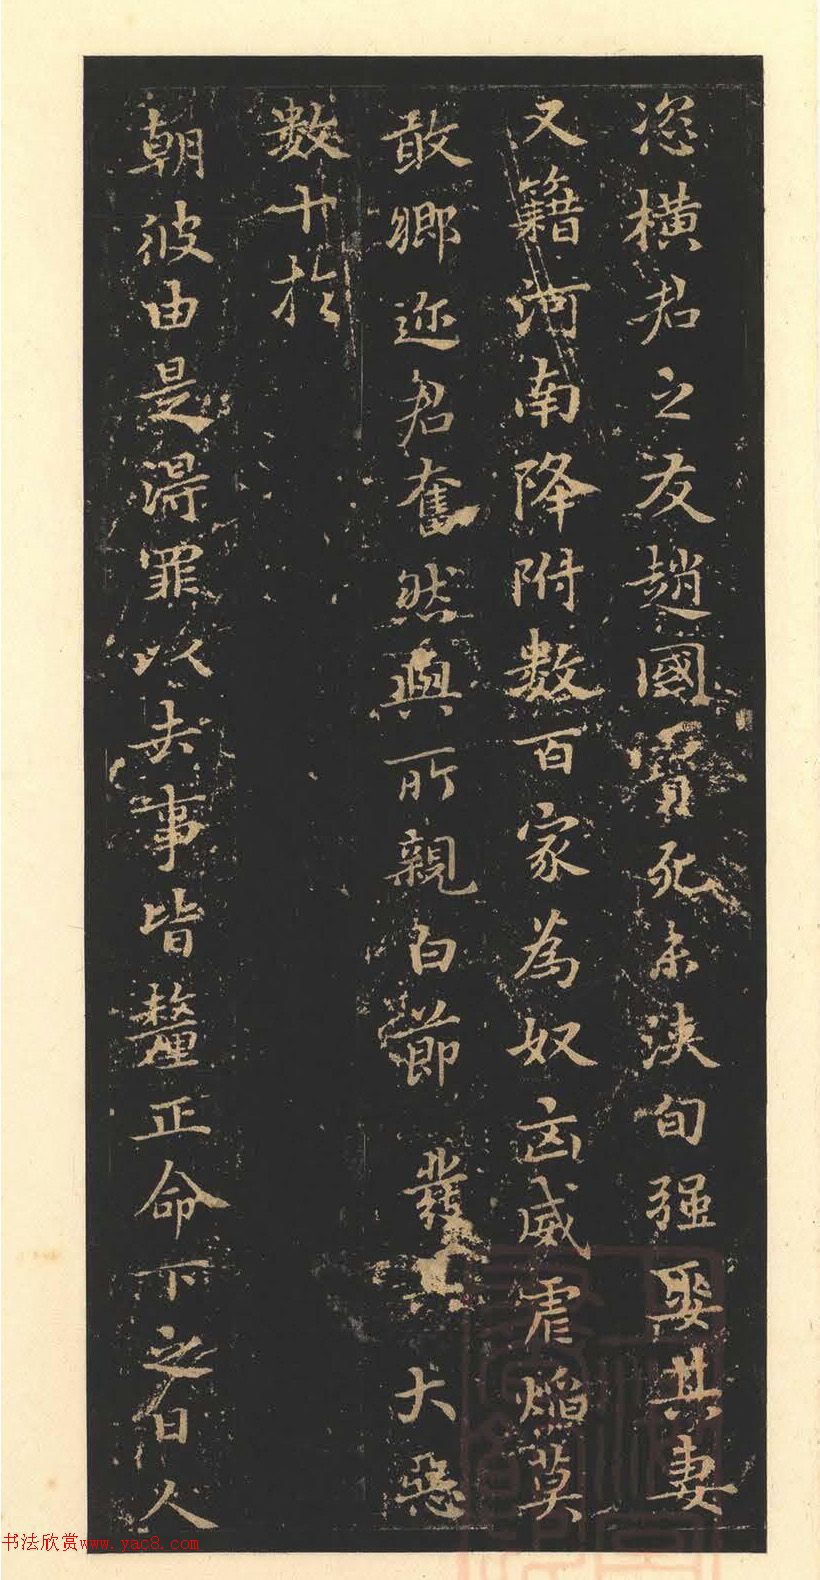 恣橫君之友趙國寶死未浹旬强娶其妻
又籍河南降附數百家為奴凶威虐焰莫
敢鄉迩君奮然與所親白節發其大惡
數十於
朝彼由是得罪以去事皆釐正命下之日人
书法欣赏www.yac8.com